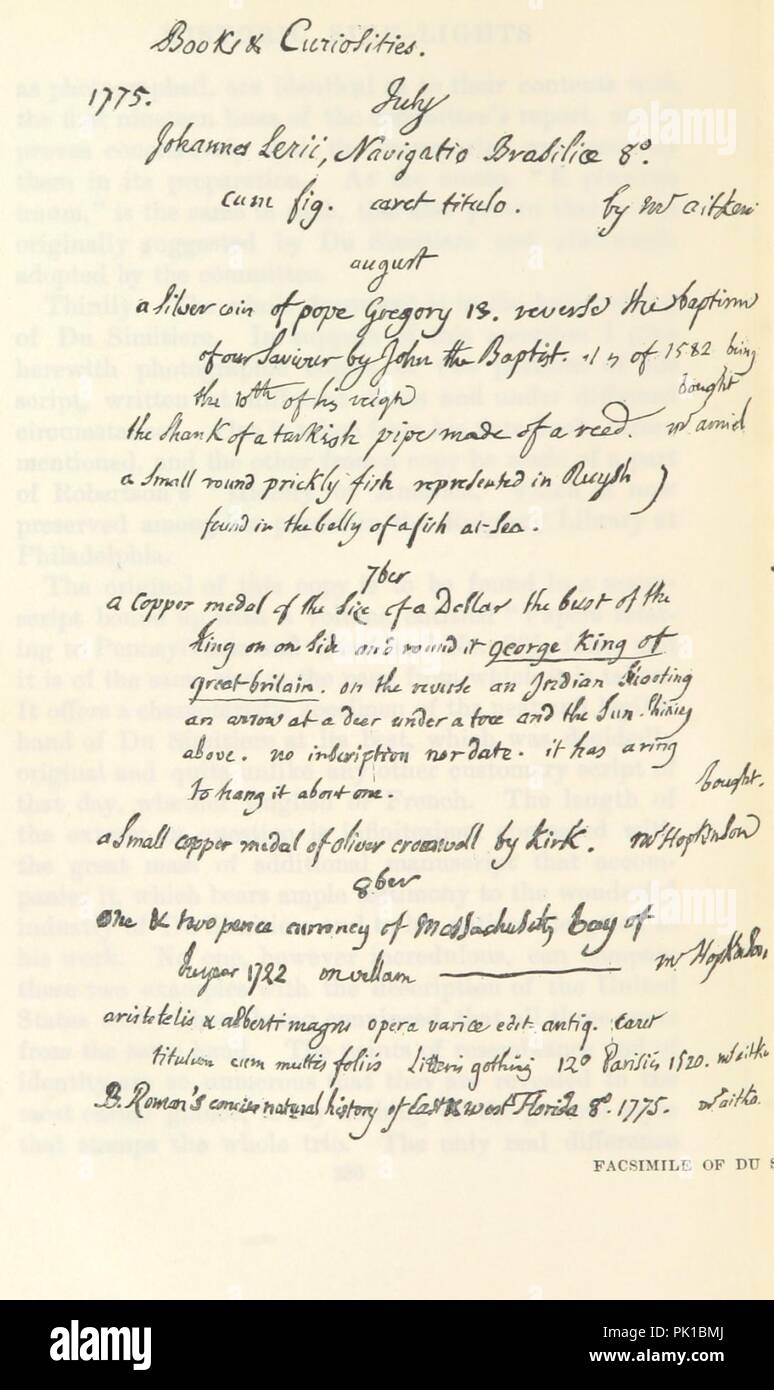 Books & Curiosities.
1775. July
Johannes Lerii, Navigatio Brasiliæ 8º.
cum fig. caret titulo. by Mr aitken
august
a silver coin of pope Gregory 13. reverse the baptism
of our Saviour by John the Baptist. it is of 1582 being
the 10th of his reign bought
the shank of a turkish pipe made of a reed. Mr amiel
a small round prickly fish represented in Ruysh
found in the belly of a fish at-sea.
7ber
a copper medal of the size of a Dollar the bust of the
King on on side and round it george King of
great britain. on the reverse an Indian shooting
an arrow at a deer under a tree and the Sun shining
above. no inscription nor date. it has a ring
to hang it about one. bought.
a small copper medal of oliver cromwell by Kirk. Mr Hopkinson
8ber
One & two pence currency of Massachusets bay of
the year 1722 on vellum Mr Hopkinson,
aristotelis & alberti magni opera variæ edit. antiq. caret
titulum cum multis foliis Litteris gothing 12º Parisiis 1520. Mr aitke
B. Roman's concise natural history of East & west Florida 8º. 1775. Mr aitke.
FACSIMILE OF DU S
alamy
alamy
alamy
Image ID: PK1BMJ
www.alamy.com